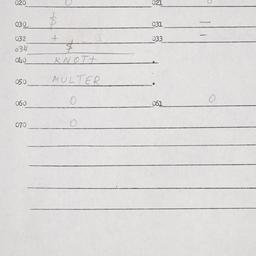 020 0 021 0
030 $ 031 —
032 + 033 -
034 $
040 KNOTT
050 MULTER
060 0 061 0
070 0